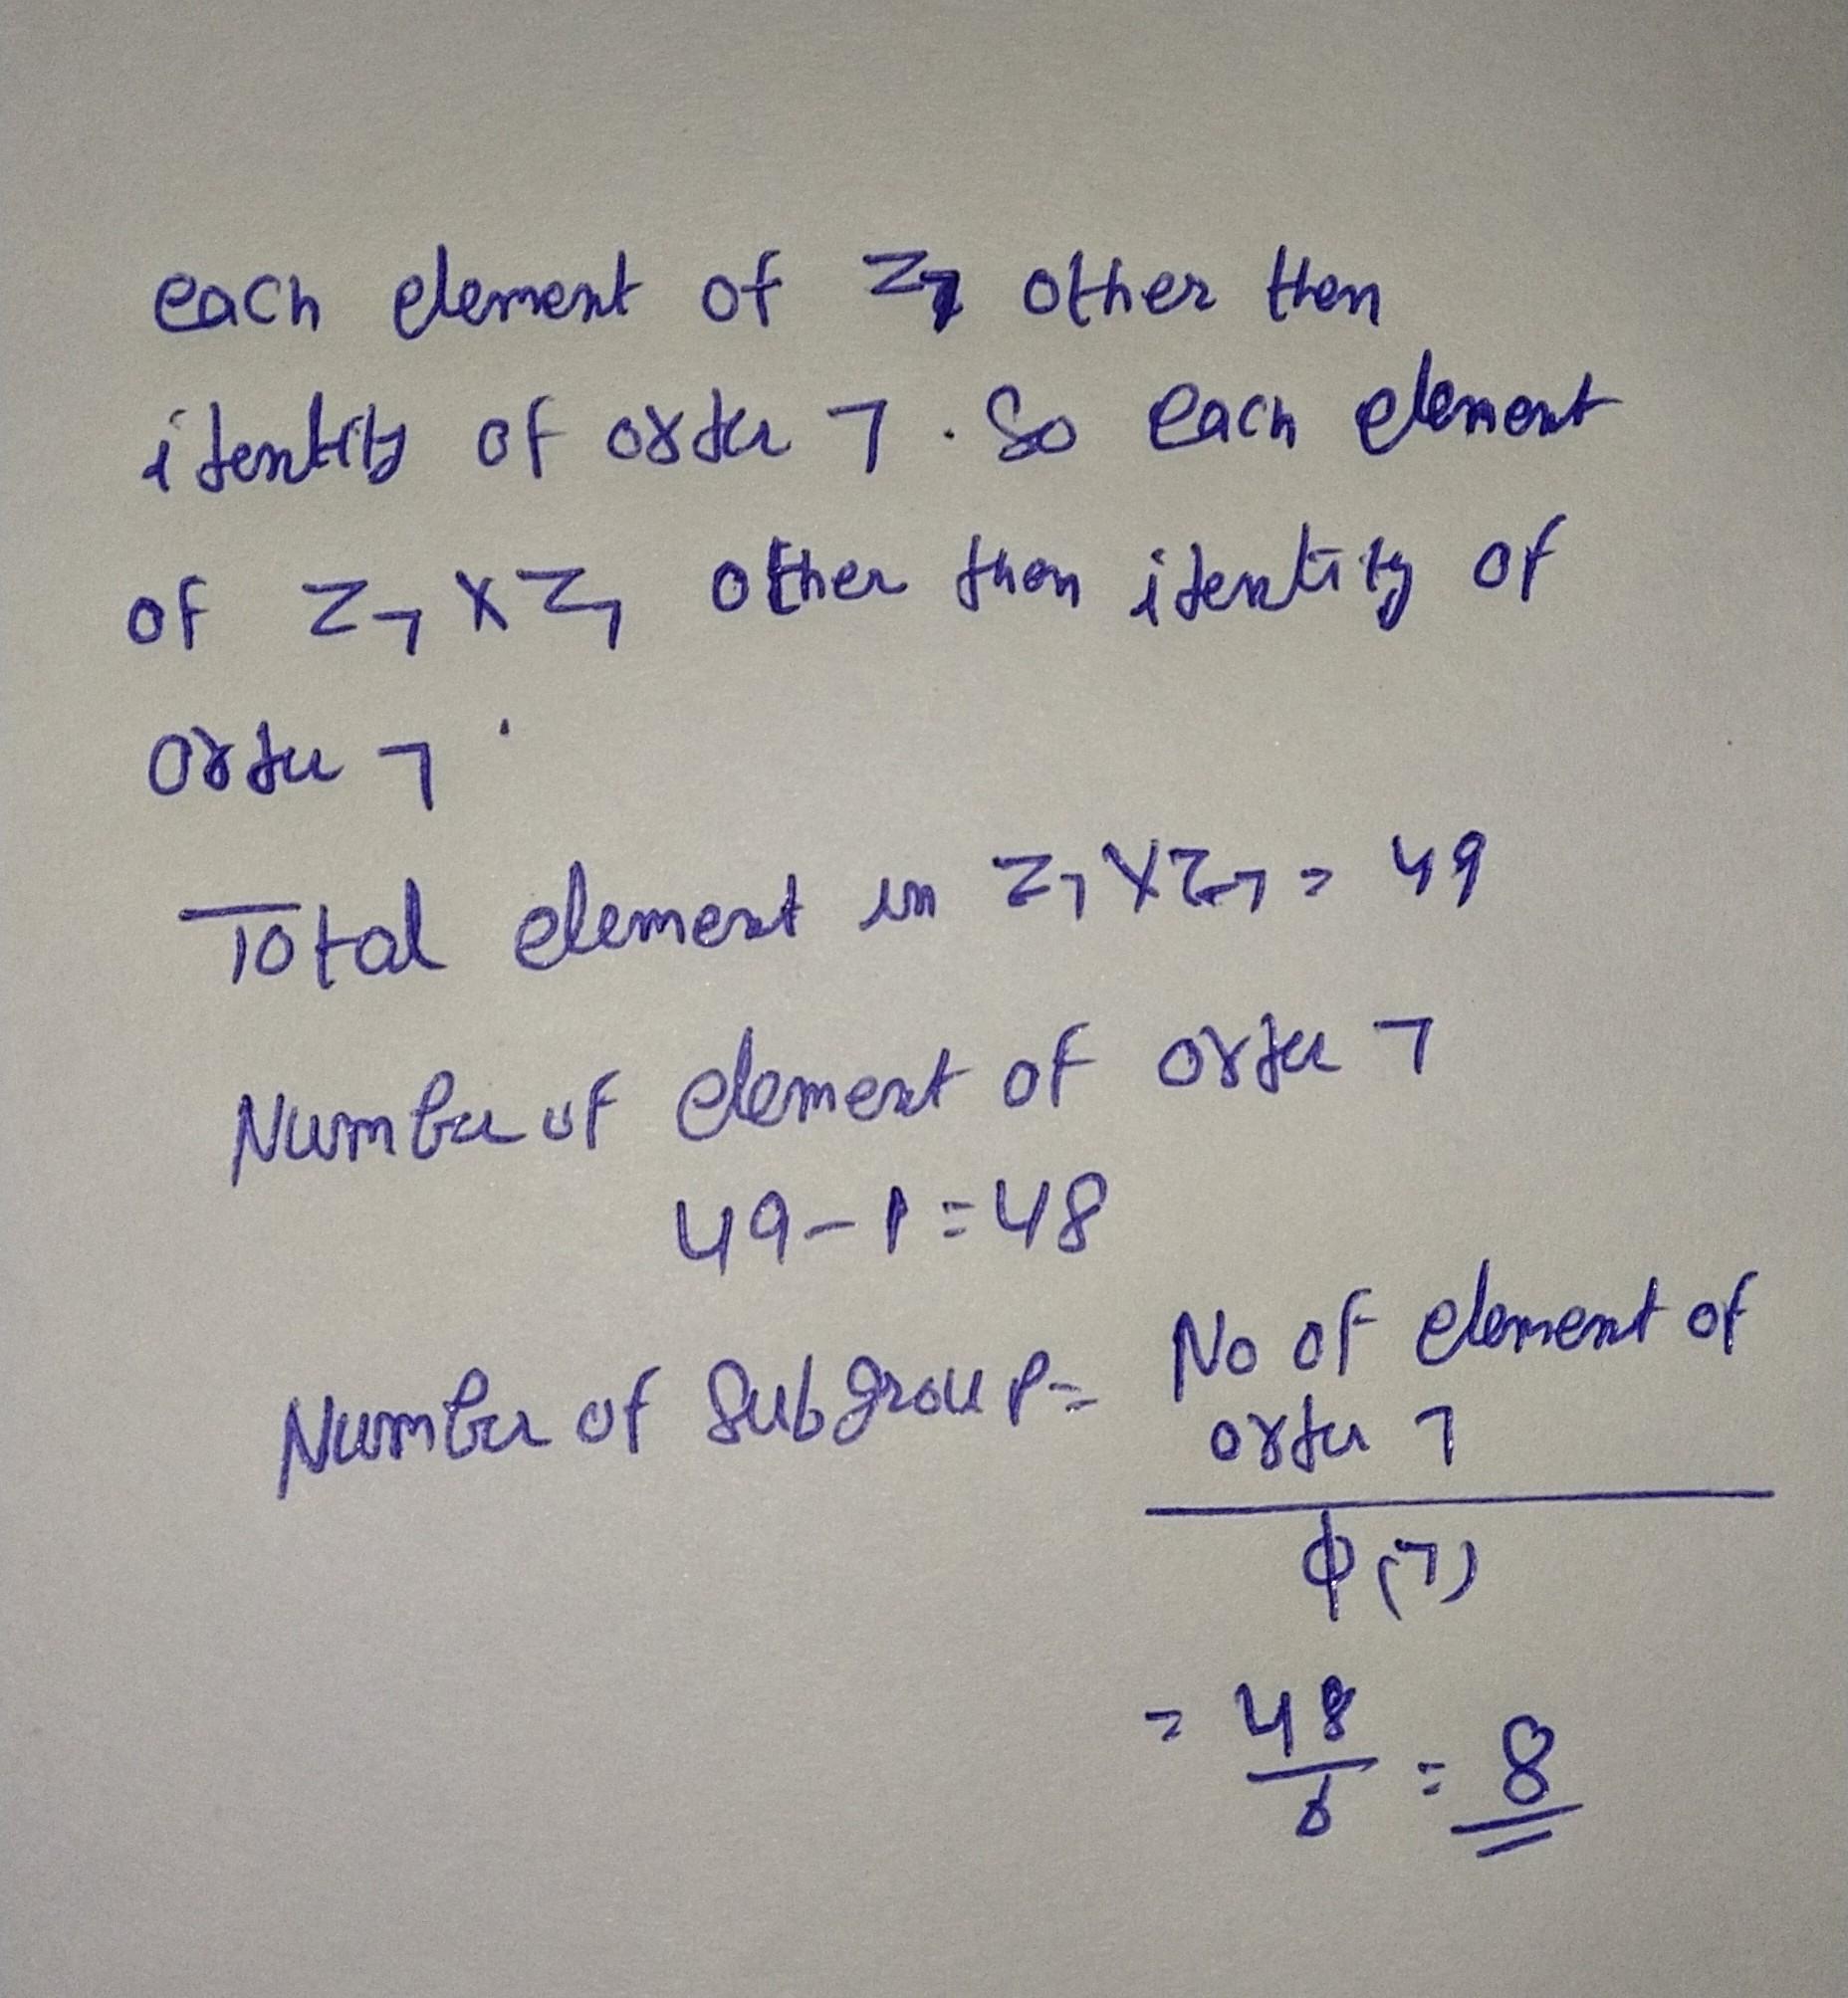 each element of Z7 other then
identity of order 7. So each element
of Z7 X Z7 other then identity of
order 7.
Total element in Z7 X Z7 = 49
Number of element of order 7
49-1=48
Number of Subgroup= No of element of
order 7
ϕ(7)
= 48
6 = 8